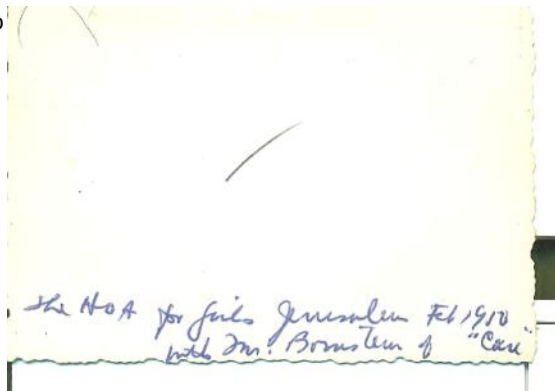 The HOA for Girls Jerusalem Feb 1950
with Mr. Bornstein of "Care"